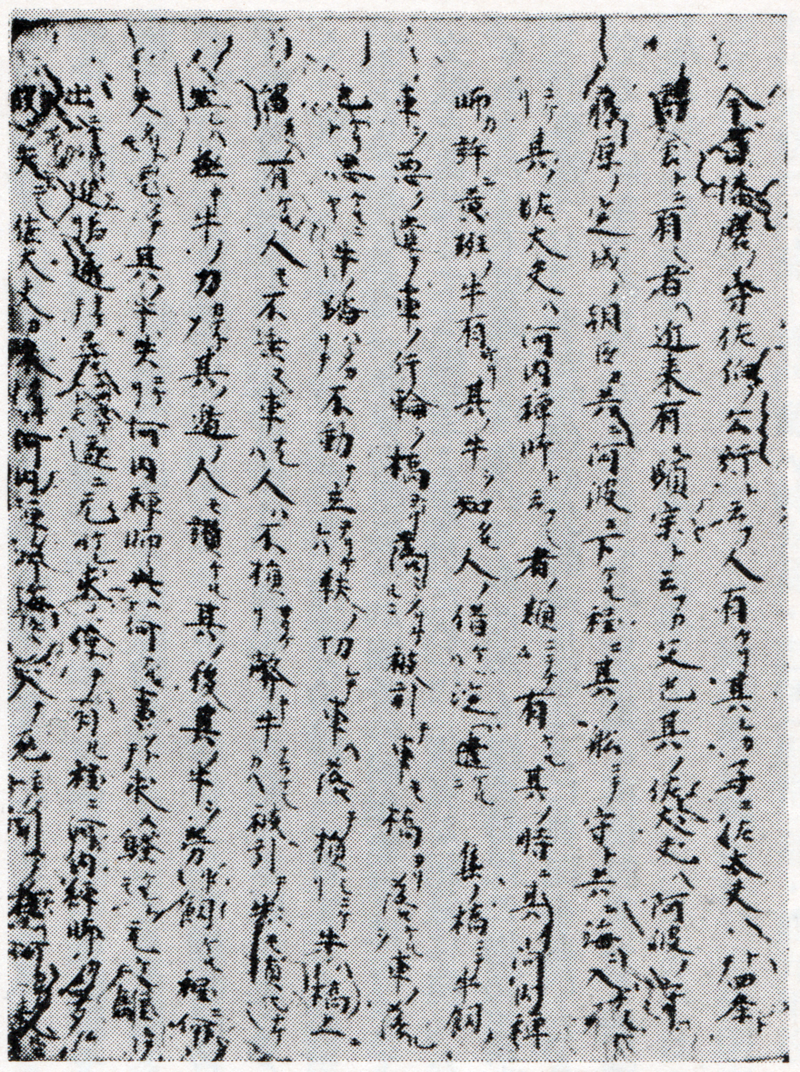 今昔播磨ノ守佐伯ノ公行ト云フ人有ケリ其レカ子ニ佐大夫   トテ四条ト
高倉トニ有シ者ハ近来有ル顕宗ト云フカ父也其ノ佐大夫ハ阿波ノ守
藤原ノ定成ノ朝臣カ共ニ阿波ニ下ケル程ニ其ノ船ニテ守ト共ニ海ニ入テ
ケリ其ノ佐大夫ハ河内禅師ト云シ者ノ類ニテナム有ケル其ノ時ニ其ノ河内禅
師カ許ニ黄斑ノ牛有ケリ其ノ牛ヲ知タル人ノ借ケレハ淀ヘ遣ケルニ 集ノ橋ニテ牛飼ノ
車ヲ悪ク遣テ車ノ片輪ヲ橋ヨリ落シタリケルニ被引テ車モ橋ヨリ落ケルヲ車ノ落ル
也ケリト思ケルニヤ牛ノ踏ハタカリテ不動テ立テリケレハ鞅ノ切レテ車ハ落テ損シニケリ牛ハ橋ノ上ニ
留テソ有ケル人モ不乗ヌ車ナレハ人ハ不損サリケリ弊キ牛ナラマシカハ被引テ牛モ損セマシ
然レハ極キ牛ノ力カナトソ其ノ辺ノ人モ讃ケル其ノ後其ノ牛ヲ労リ飼ケル程ニ何
失タリトモ无クテ其ノ牛失ニケリ河内禅師此ハ何ナル事ソト求メ騒ケレトモ无ケレハ離レテ
出ニケルカト近ヨリ遠 尋 遂ニ无ケレハ求メ 有ル程ニ河内禅師カ夢ニ
彼ノ失ニシ佐大夫カ来 河内禅師海ニ落入テ死ニキト聞ク者ハ何